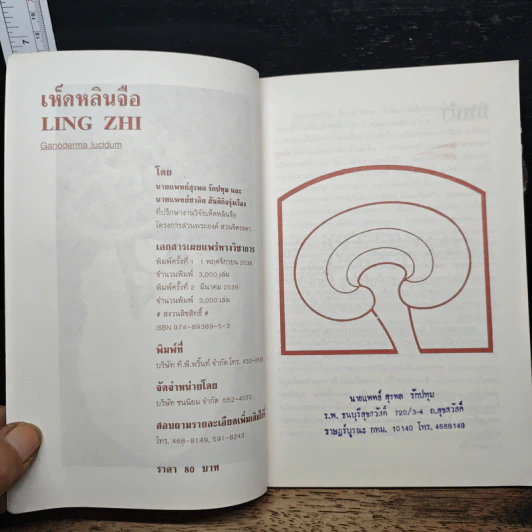 เห็ดหลินจือ
LING ZHI
Ganoderma lucidum
โดย
นายแพทย์สุรพล รักปทุม และ
นายแพทย์ชวลิต สันติกิจรุ่งเรือง
ที่ปรึกษางานวิจัยเห็ดหลินจือ
โครงการสวนพระองค์ สวนจิตรลดา
เอกสารเผยแพร่ทางวิชาการ
พิมพ์ครั้งที่ 1 1 พฤศจิกายน 2538
จำนวนพิมพ์ 3,000 เล่ม
พิมพ์ครั้งที่ 2 มีนาคม 2539
จำนวนพิมพ์ 3,000 เล่ม
# สงวนลิขสิทธิ์ #
ISBN 974-89369-5-3
พิมพ์ที่
บริษัท ที.พี.พริ้นท์ จำกัด โทร.
จัดจำหน่ายโดย
บริษัท ชนนิยม จำกัด 552-4070
สอบถามรายละเอียดเพิ่มเติมได้ที่
โทร. 468-8149, 591-8243
ราคา 80 บาท
นายแพทย์ สุรพล รักปทุม
ร.พ. ธนบุรีสุขสวัสดิ์ 720/3-4 ถ.สุขสวัสดิ์
ราษฎร์บูรณะ กทม. 10140 โทร. 4688149
7